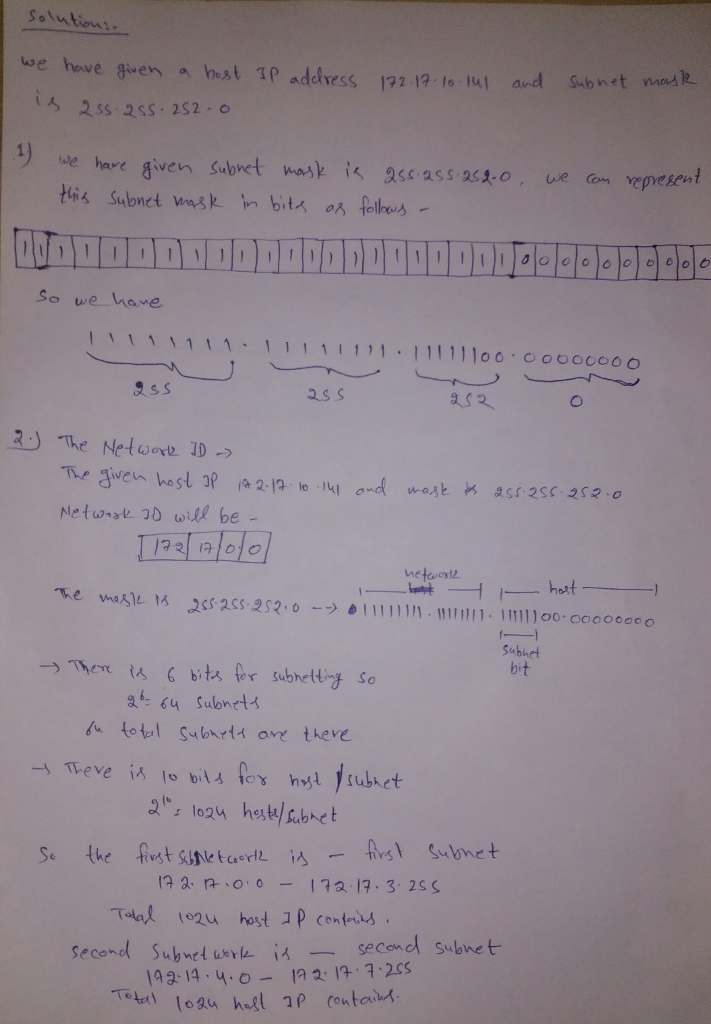 Solution:-
we have given a host IP address 172.17.10.141 and subnet mask
is 255.255.252.0
1) we have given subnet mask is 255.255.252.0, we can represent
this subnet mask in bits as follows -
1 1 1 1 1 1 1 1 1 1 1 1 1 1 1 1 1 1 1 1 1 1 0 0 0 0 0 0 0 0 0
so we have
1 1 1 1 1 1 1 1 . 1 1 1 1 1 1 1 1 . 11111100 . 00000000
255 255 252 0
2.) The Network ID →
The given host IP 172.17.10.141 and mask is 255.255.252.0
Network ID will be -
172 17 0 0
network host
The mask is 255.255.252.0 --> 11111111.11111111.11111100.00000000
subnet
bit
→ There is 6 bits for subnetting so
2^6 = 64 subnets
64 total subnets are there
→ There is 10 bits for host/subnet
2^10 = 1024 hosts/subnet
So the first subnetwork is - first subnet
172.17.0.0 - 172.17.3.255
Total 1024 host IP contains.
second subnetwork is - second subnet
172.17.4.0 - 172.17.7.255
Total 1024 host IP contains.